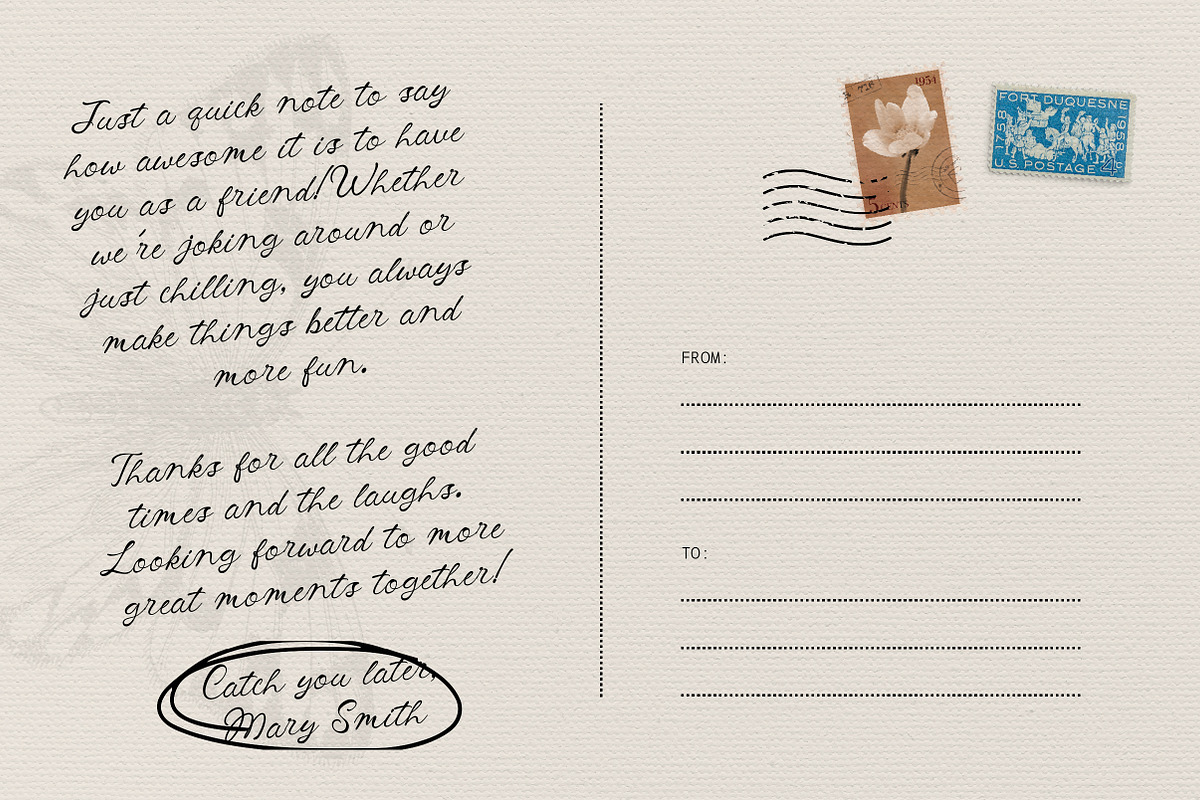 Just a quick note to say
how awesome it is to have
you as a friend! Whether
we're joking around or
just chilling, you always
make things better and
more fun.
Thanks for all the good
times and the laughs.
Looking forward to more
great moments together!
Catch you later,
Mary Smith
1954
5 CENTS
FORT DUQUESNE
1758
1958
U.S. POSTAGE 4¢
FROM:
TO: